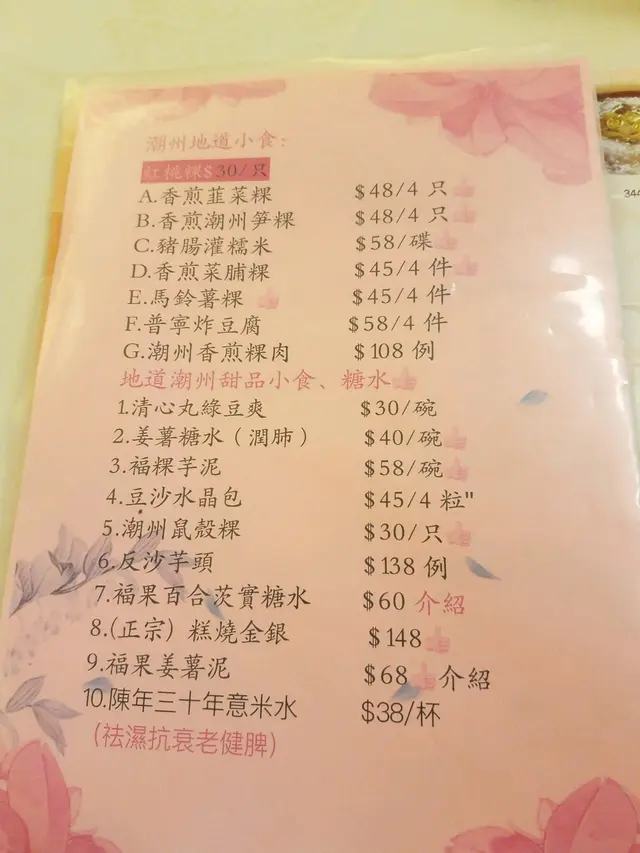 潮州地道小食:
紅桃粿$30/只
A.香煎韮菜粿 $48/4 只
B.香煎潮州笋粿 $48/4 只
C.豬腸灌糯米 $58/碟
D.香煎菜脯粿 $45/4 件
E.馬鈴薯粿 $45/4 件
F.普寧炸豆腐 $58/4 件
G.潮州香煎粿肉 $108 例
地道潮州甜品小食、糖水
1.清心丸綠豆爽 $30/碗
2.姜薯糖水（潤肺） $40/碗
3.福粿芋泥 $58/碗
4.豆沙水晶包 $45/4 粒"
5.潮州鼠殼粿 $30/只
6.反沙芋頭 $138 例
7.福果百合茨實糖水 $60 介紹
8.(正宗) 糕燒金銀 $148
9.福果姜薯泥 $68 介紹
10.陳年三十年意米水 $38/杯
(祛濕抗衰老健脾)
344